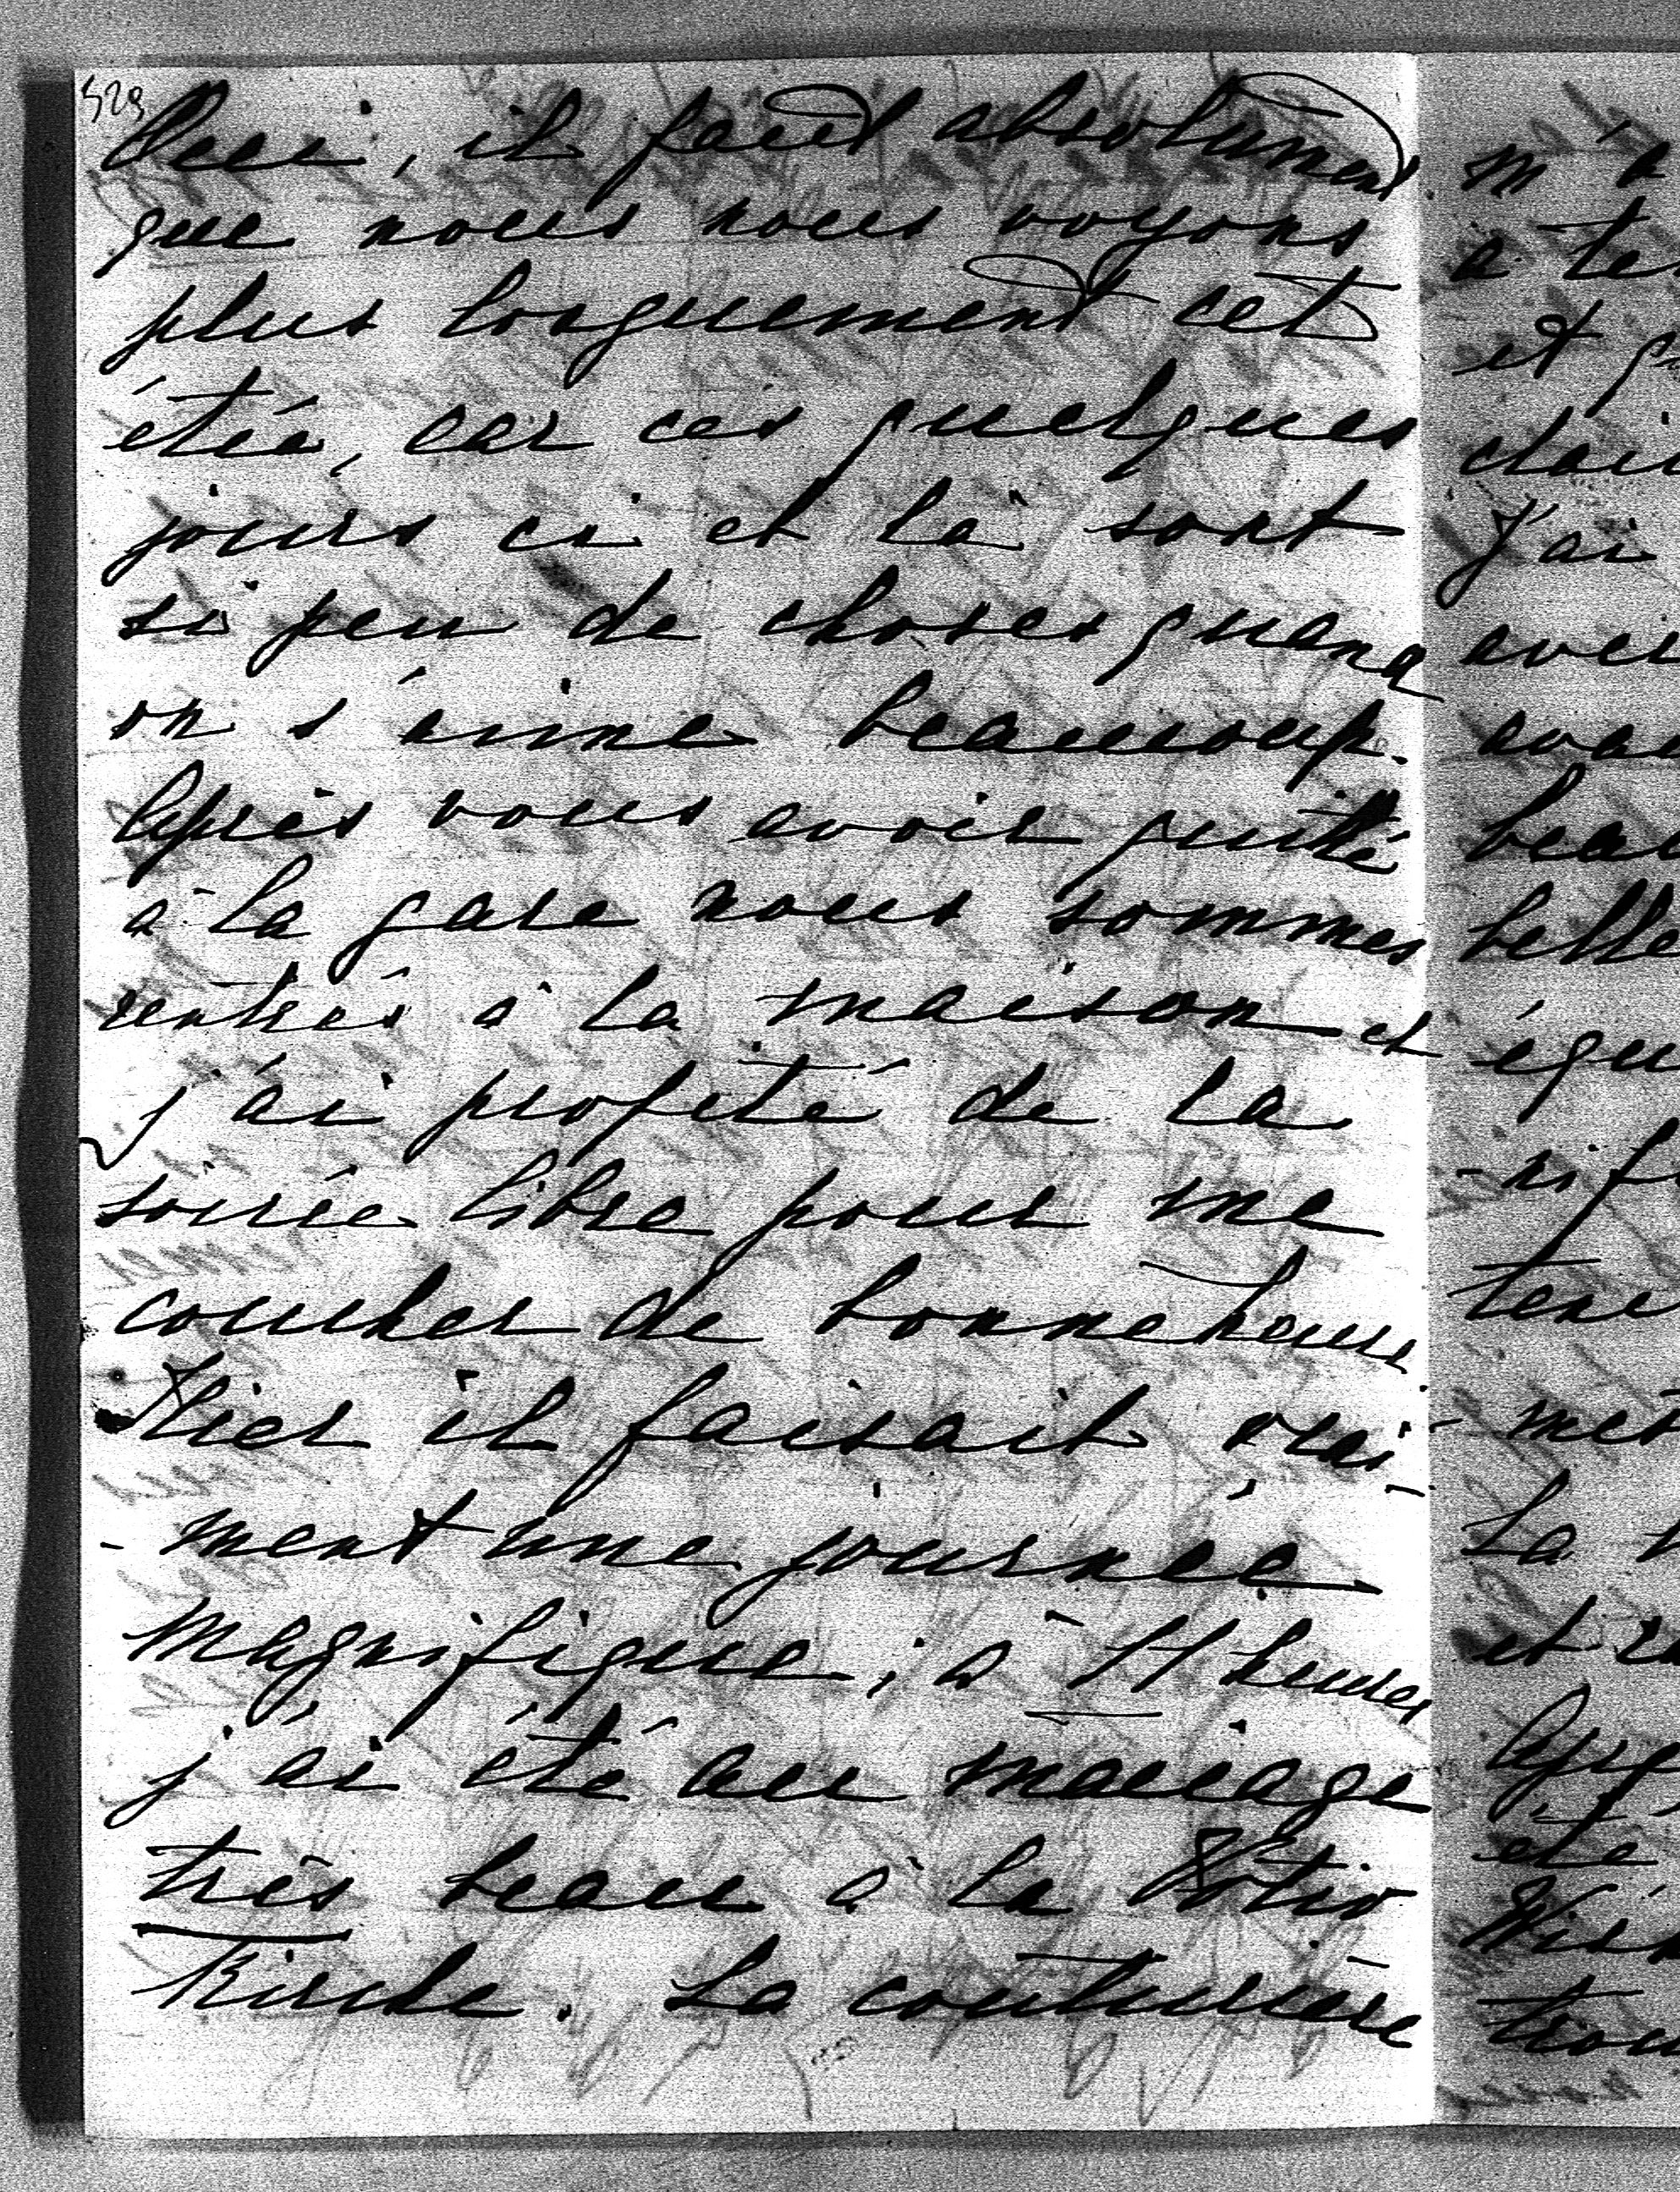 529
Oui, il faut absolument
que nous nous voyons
plus longuement cet
été, car ces quelques
jours ci et là sont
si peu de choses quand
on s'aime beaucoup.
Après vous avoir quitté
à la gare nous sommes
rentrés à la maison et
j'ai profité de la
soirée libre pour me
coucher de bonne heure
Hier il faisait vrai-
-ment une journée
magnifique; à 11 heures
j'ai été au mariage
très beau à la Votiv
Kirche. La couturière
m'a
et
clai
J'ai
avec
beau
belle
égu
-rif
La
et
été
trou